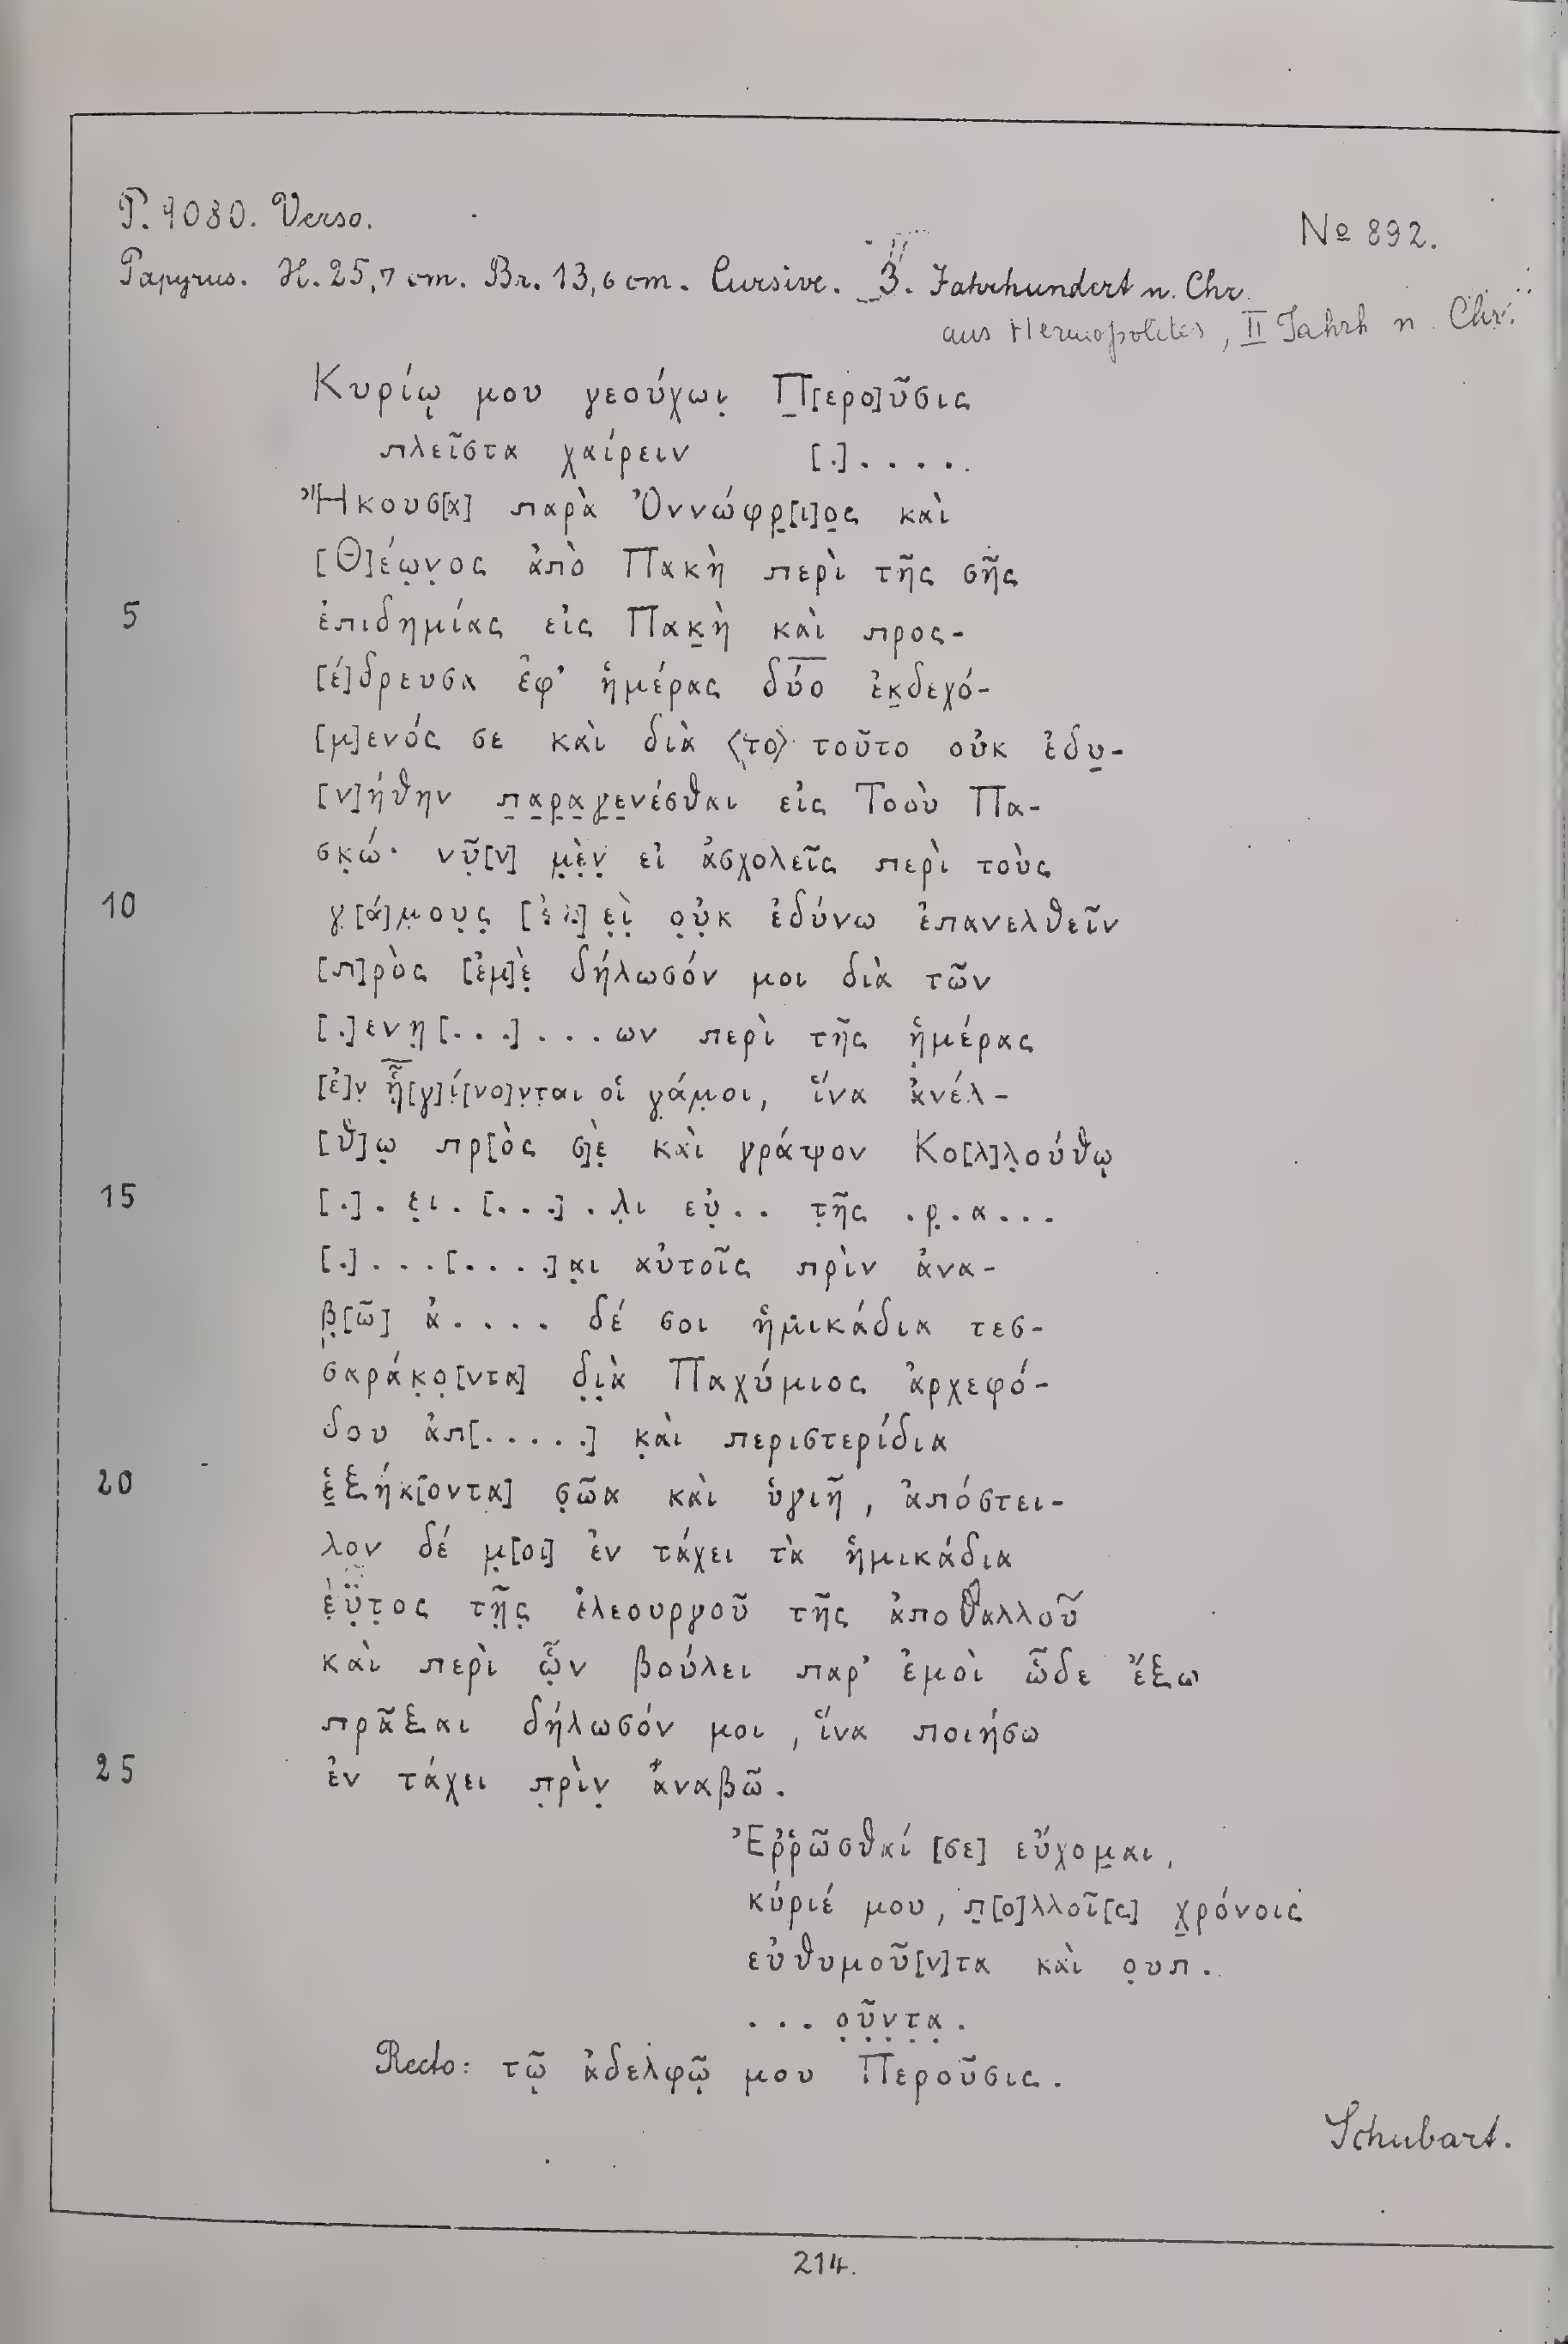 P. 9080. Verso.
No 892.
Papyrus. H. 25,7 cm. Br. 13,6 cm. Cursive. 3. Jahrhundert n. Chr.
aus Hermopolites, II Jahrh n. Chr.
Κυρίῳ μου γεούχωι̣ Π̣[ερο]ῦσις
πλεῖστα χαίρειν [.] . . . . .
Ἤκουσ[α] παρὰ Ὀννώφρ̣[ι]ο̣ς καὶ
[Θ]έω̣ν̣ος ἀπὸ Πακὴ περὶ τῆς σῆς
5 ἐπιδημίας εἰς Πακ̣ὴ καὶ προς-
[έ]δρευσα ἐφ' ἡμέρας δύο ἐκ̣δεχό-
[μ]ενός σε καὶ διὰ ⟨το⟩ τοῦτο οὐκ ἐδυ̣-
[ν]ήθην π̣α̣ρ̣α̣γ̣ε̣νέσθαι εἰς Τοοὺ Πα-
σκ̣ώ· νῦ̣[ν] μ̣ὲ̣ν̣ εἰ ἀσχολεῖς περὶ τοὺς
10 γ̣[ά]μ̣ου̣ς̣ [ἐπ]ε̣ὶ̣ ο̣ὐ̣κ ἐδύνω ἐπανελθεῖν
[π]ρὸς [ἐμ]ὲ̣ δήλωσόν μοι διὰ τῶν
[.]ενη̣[. . .] . . . ων περὶ τῆς ἡμέρας
[ἐ]ν̣ ᾗ̣ [γ]ί̣[νο]ν̣τ̣αι οἱ γ̣άμ̣οι, ἵνα ἀνέλ-
[θ]ω̣ πρ[ὸς σ]ὲ̣ καὶ γράψον Κο[λ]λ̣ούθῳ
15 [.] . ε̣ι . [. . .] . λ̣ι εὐ̣ . . τ̣ῆς . ρ̣ . α . . .
[.] . . . [. . . .]α̣ι αὐτοῖς πρὶν ἀνα-
β̣[ῶ] ἀ . . . . δέ σοι ἡμικάδια τεσ-
σαράκ̣ο̣[ντα] δ̣ι̣ὰ Παχύμιος ἀρχεφό-
δου ἀπ[. . . . .] κ̣αὶ περιστερίδια
20 ἑ̣ξήκ[οντα] σ̣ῶα καὶ ὑγιῆ, ἀπόστει-
λον δέ μ̣[οι] ἐν τάχει τὰ ἡμικάδια
ἐ̣ϋ̣τ̣ος τῆ̣ς̣ ἐλεουργοῦ τῆς ἀποθαλλοῦ
καὶ περὶ ὧ̣ν βούλει παρ' ἐμοὶ ὧδε ἔξω
πρᾶξαι δήλωσόν μοι, ἵνα ποιήσω
25 ἐν τάχει π̣ρὶν̣ ἀναβῶ.
Ἐῤῥῶσθαί [σε] εὔχομ̣αι,
κύριέ μου, π̣[ο]λλοῖ[ς] χ̣ρόνοις
εὐθυμοῦ[ν]τα καὶ ο̣υπ .
. . . ο̣ῦ̣ν̣τ̣α̣.
Recto: τῷ ἀδελφῷ μου Περοῦσις.
Schubart.
214.